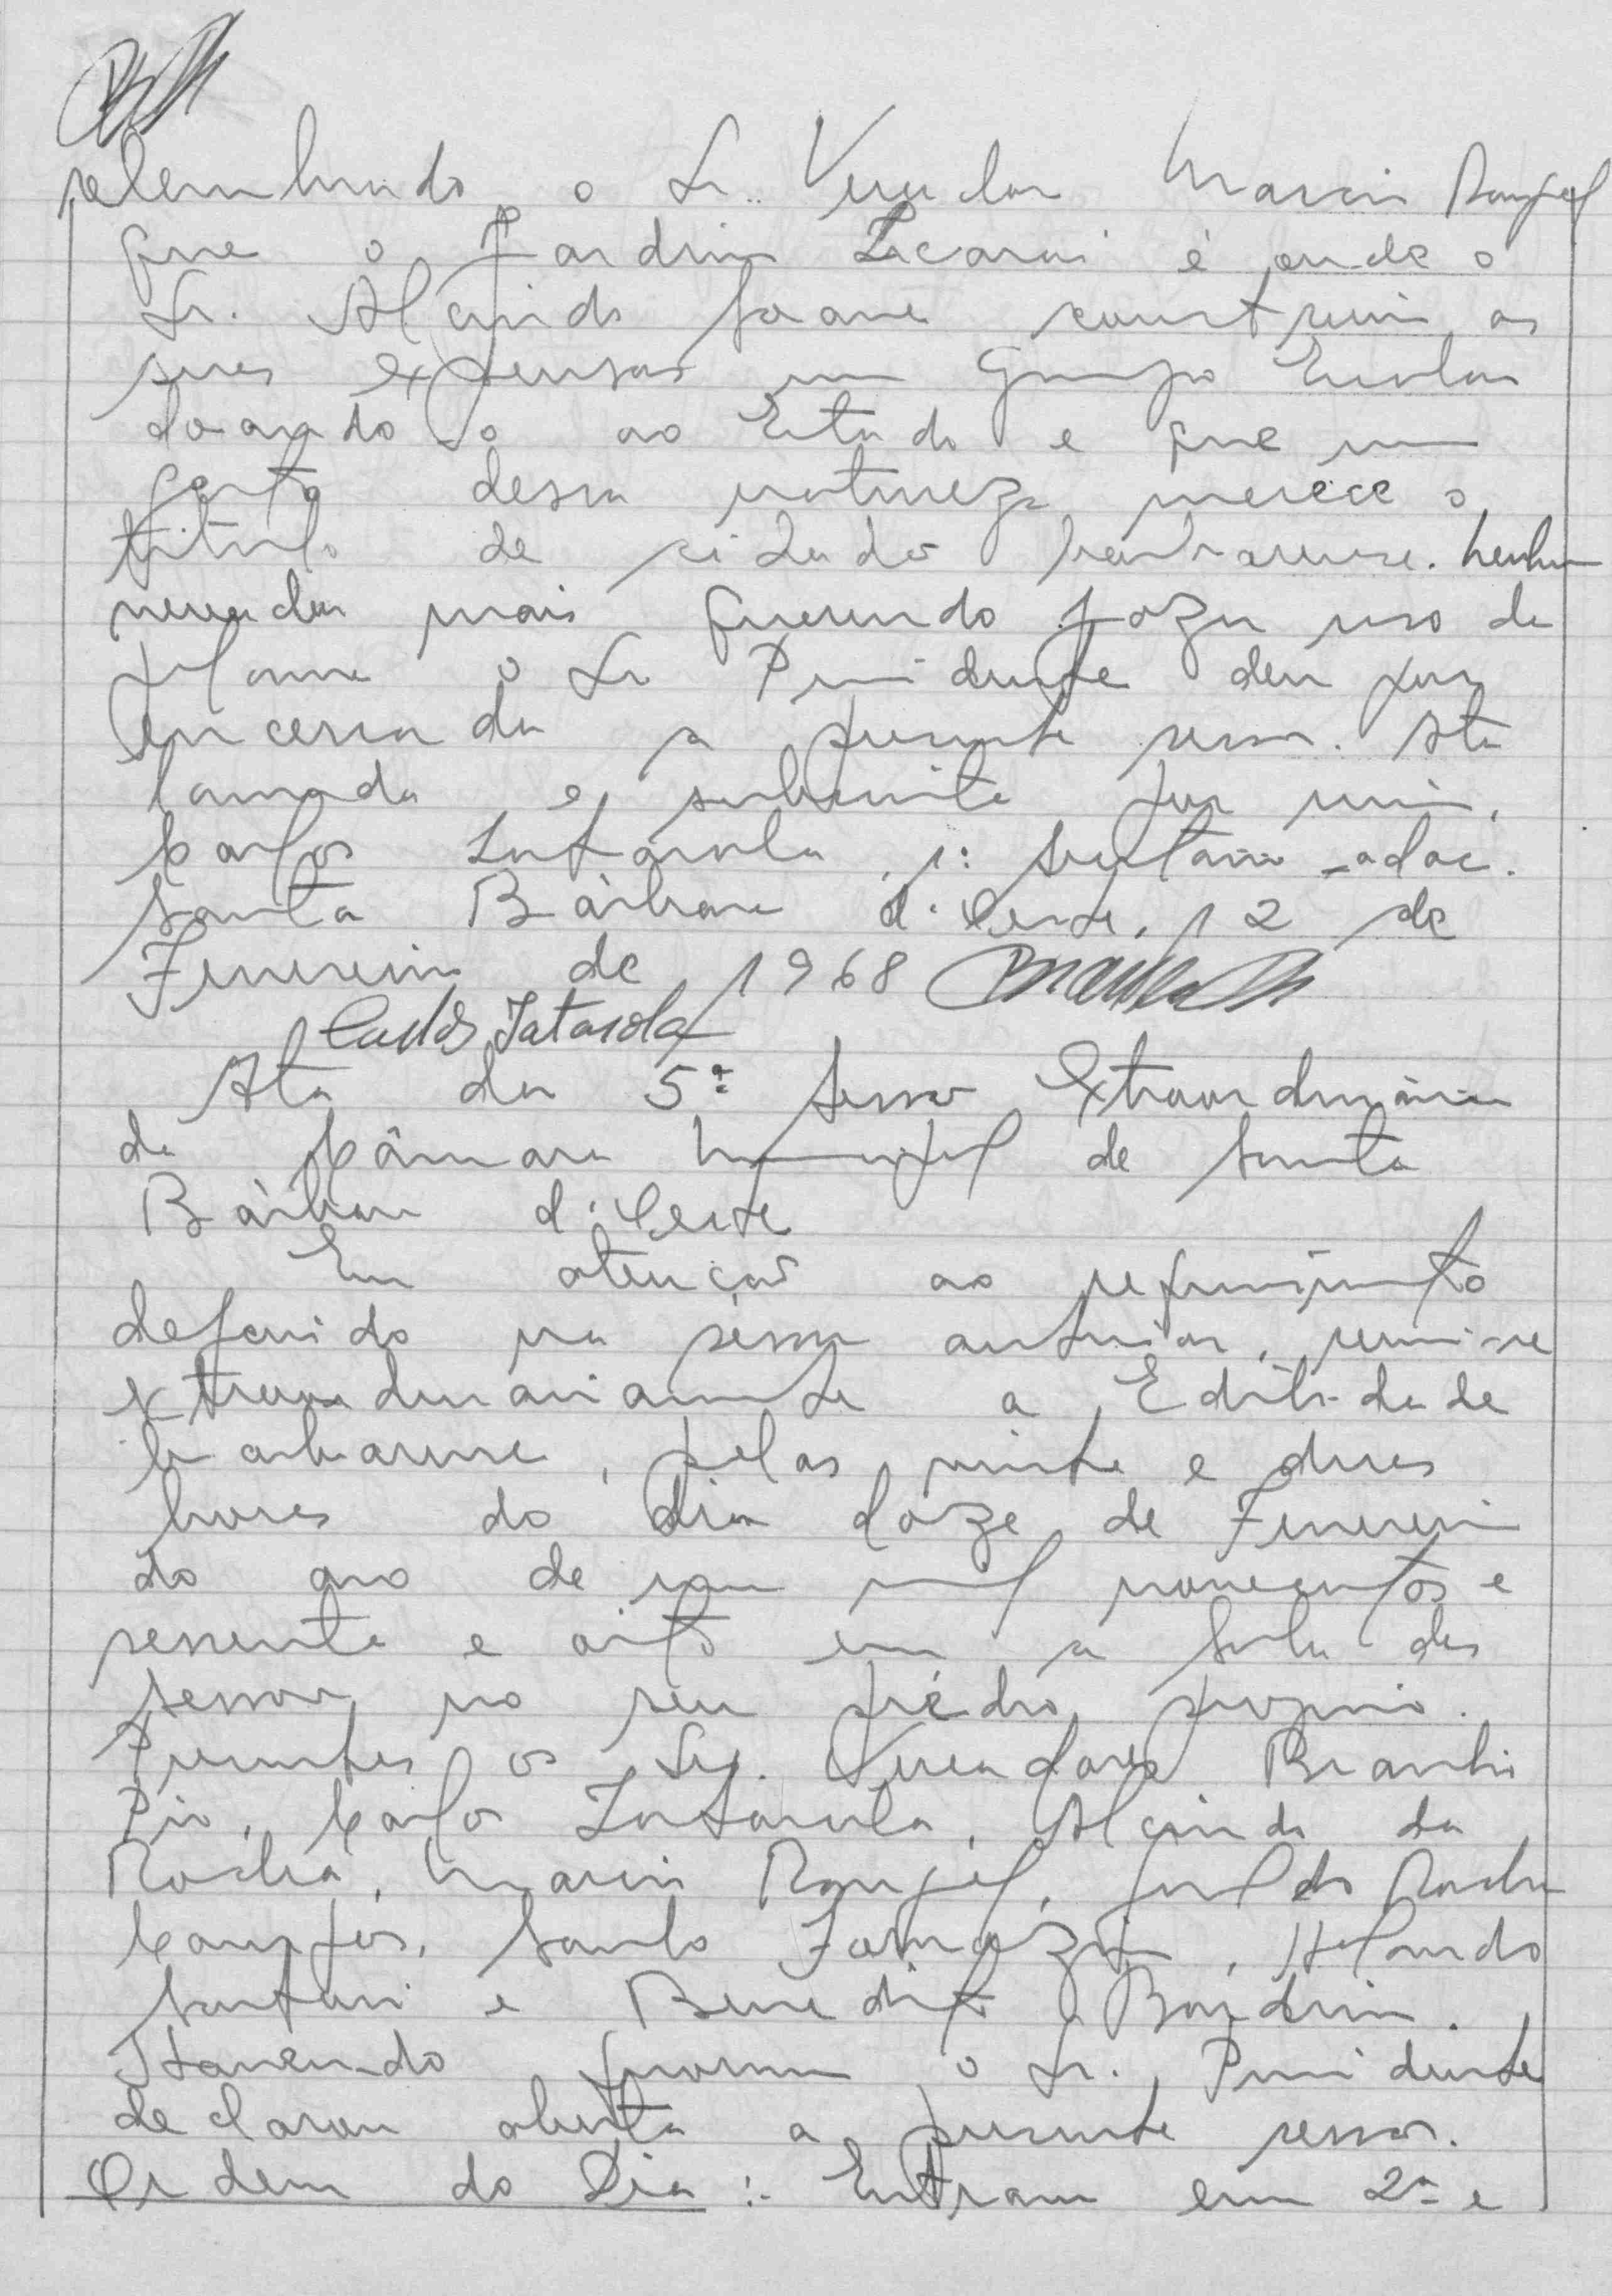 relembrando o Sr. Vereador Marcio Rangel
que o Jardim Icarai é onde o
Sr. Alcindo construiu as
sues expensas um Grupo Escolar
doando-o ao Estado e que um
gesto dessa natureza merece o
titulo de cidadão barbarense. Nenhum
vereador mais querendo fazer uso da
palavra o Sr Presidente deu por
encerrada a presente sessão. Ata
lavrada e subscrita por mim,
Carlos Tatarola, 1º secretario adoc.
Santa Bárbara d'Oeste, 12 de
Fevereiro de 1968
Carlos Tatarola
Ata da 5ª Sessão Extraordinária
da Câmara Municipal de Santa
Bárbara d'Oeste
Em atenção ao requerimento
deferido na sessão anterior, reuni-se
extraordinariamente a Edilidade
barbarense, pelas vinte e dues
hores do dia doze de Fevereiro
do ano de um mil novecentos e
sessenta e oito em a Sala das
sessões no seu prédio proprio.
Presentes os Srs. Vereadores Braulio
Pio, Carlos Tatarola, Alcindo da
Rocha, Marcio Rangel, da Rocha
Campos, Santo
e Benedito
Havendo quorum o Sr. Presidente
declarou aberta a presente sessão.
Ordem do Dia: Entram em 2ª e